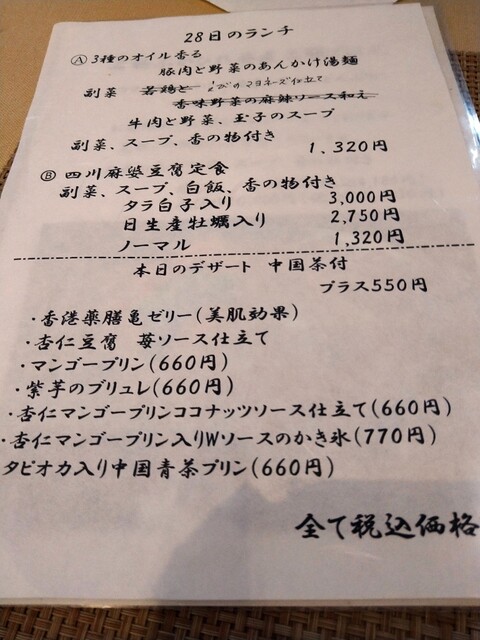 28日のランチ
Ⓐ 3種のオイル香る
豚肉と野菜のあんかけ湯麺
副菜 若鶏と えびのマヨネーズ仕立て
香味野菜の麻辣ソース和え
牛肉と野菜、玉子のスープ
副菜、スープ、香の物付き
1,320円
Ⓑ 四川麻婆豆腐定食
副菜、スープ、白飯、香の物付き
タラ白子入り 3,000円
日生産牡蠣入り 2,750円
ノーマル 1,320円
本日のデザート 中国茶付
プラス550円
・香港薬膳亀ゼリー(美肌効果)
・杏仁豆腐 苺ソース仕立て
・マンゴープリン(660円)
・紫芋のブリュレ(660円)
・杏仁マンゴープリンココナッツソース仕立て(660円)
・杏仁マンゴープリン入りWソースのかき氷(770円)
タピオカ入り中国青茶プリン(660円)
全て税込価格